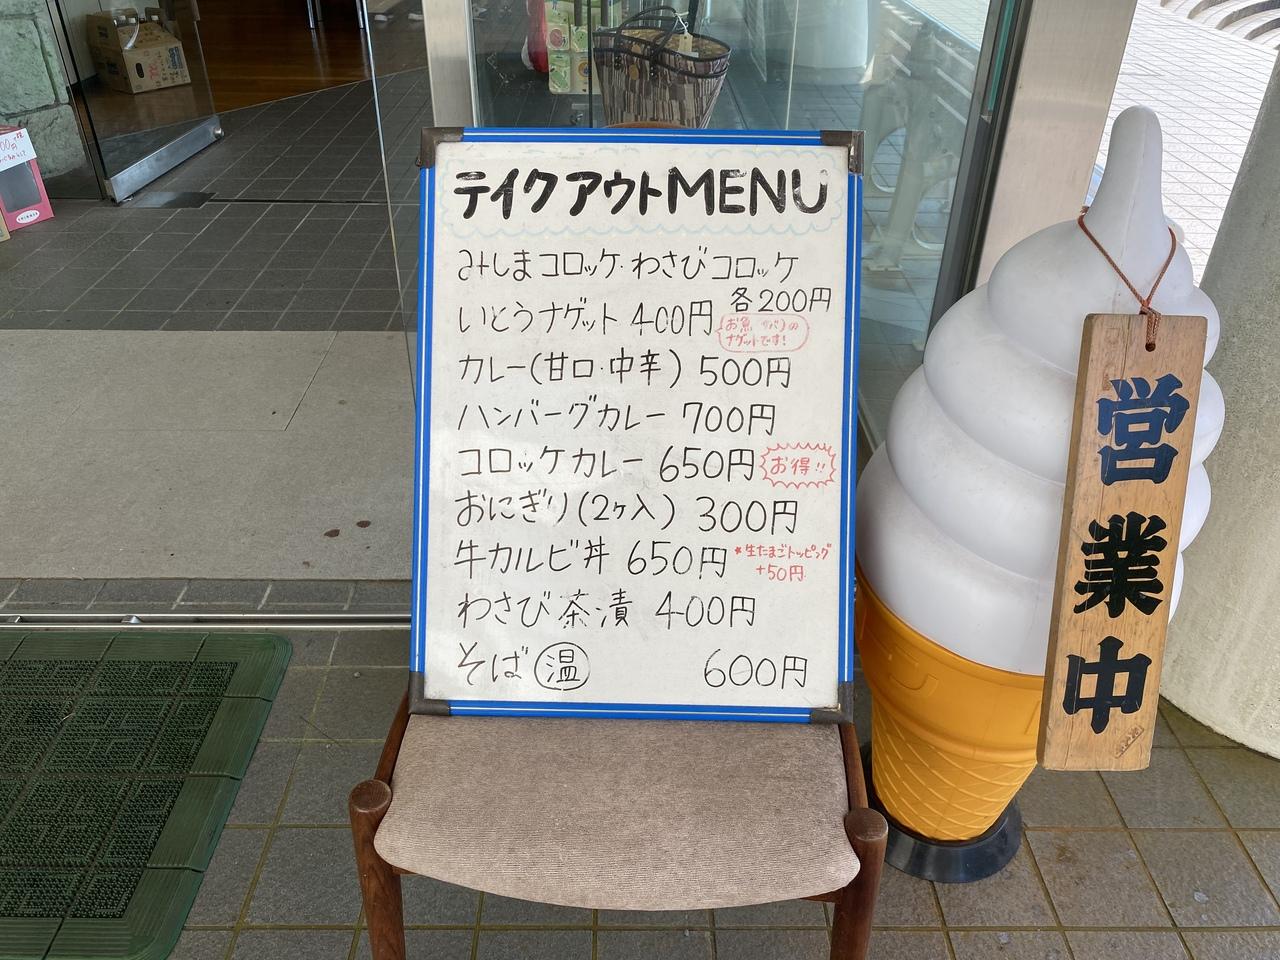 テイクアウトMENU
みしまコロッケ・わさびコロッケ
各200円
いとうナゲット 400円
お魚(サバ)の
ナゲットです!
カレー(甘口・中辛) 500円
ハンバーグカレー 700円
コロッケカレー 650円
お得!!
おにぎり(2ヶ入) 300円
牛カルビ丼 650円
*生たまごトッピング
+50円
わさび茶漬 400円
そば 温 600円
営業中